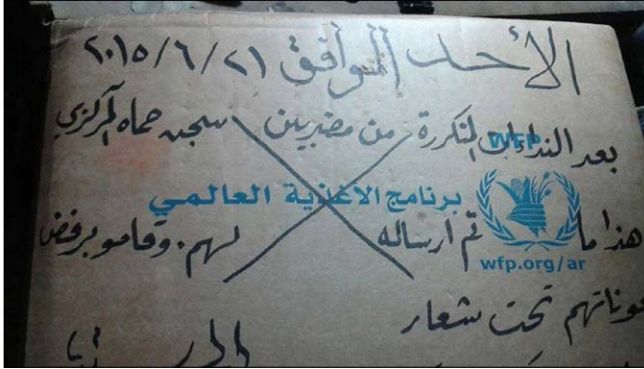 الأحد الموافق ٢٠١٥/٦/٢١
بعد النداءات المتكررة من مضربين سجن حماه المركزي
WFP
برنامج الاغذية العالمي
هذا ما تم ارساله لهم. وقامو برفض
wfp.org/ar
تحت شعار